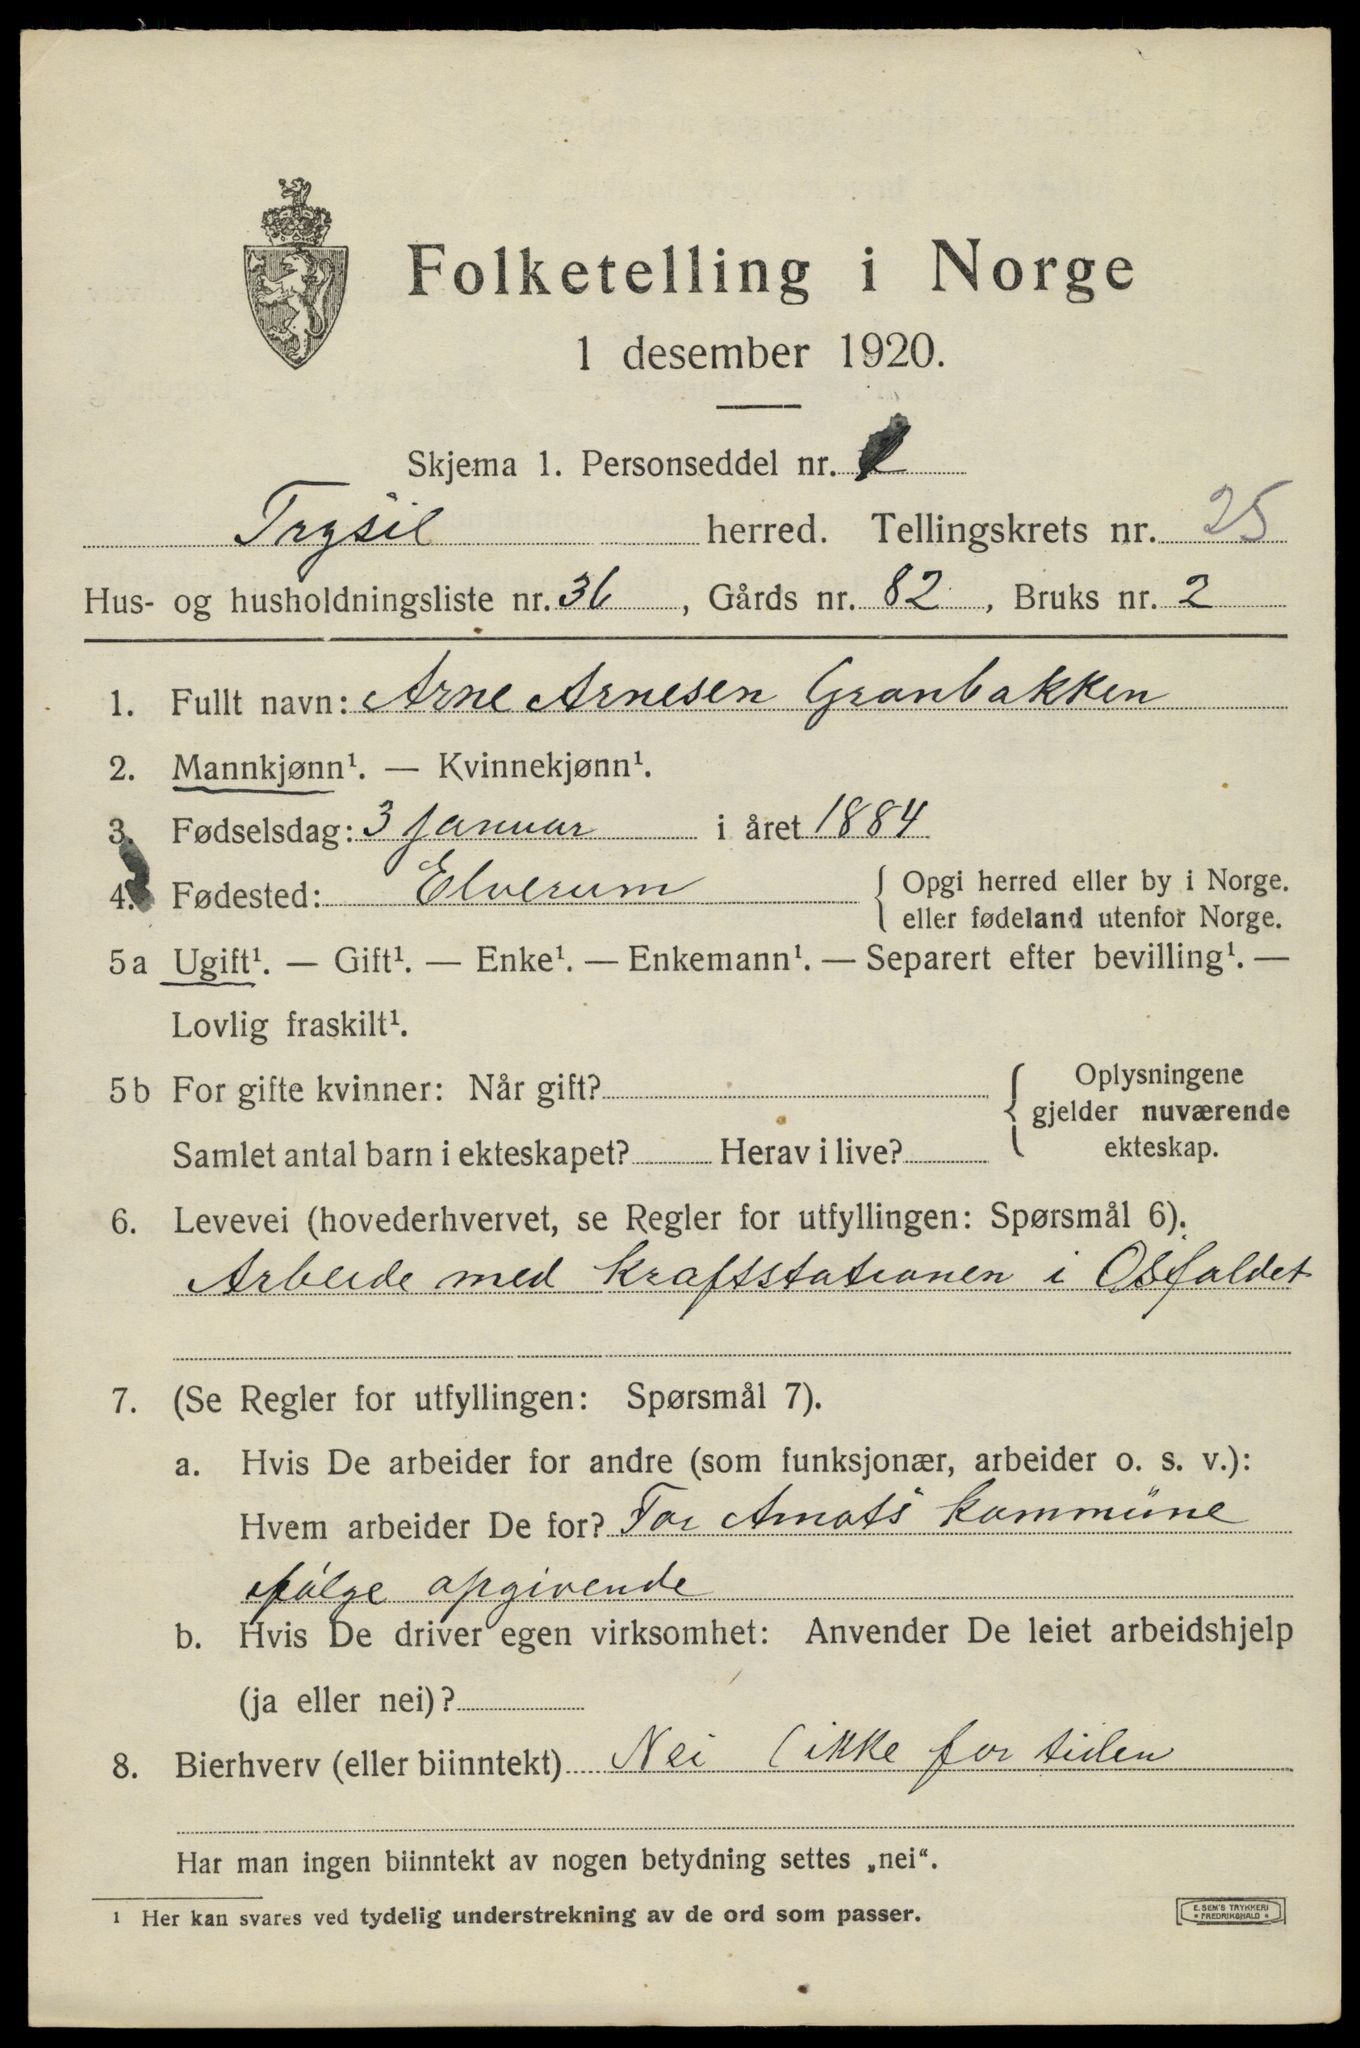 Folketelling i Norge
1 desember 1920.
Skjema 1. Personseddel nr.
Trysil herred. Tellingskrets nr. 25
Hus- og husholdningsliste nr. 36, Gårds nr. 82, Bruks nr. 2
1. Fullt navn: Arne Arnesen Granbakken
2. Mannkjønn¹. — Kvinnekjønn¹.
3. Fødselsdag: 3 januar i året 1884
4. Fødested: Elverum { Opgi herred eller by i Norge.
eller fødeland utenfor Norge.
5a Ugift¹. — Gift¹. — Enke¹. — Enkemann¹. — Separert efter bevilling¹. —
Lovlig fraskilt¹.
5b For gifte kvinner: Når gift? { Oplysningene
gjelder nuværende
Samlet antal barn i ekteskapet? Herav i live? ekteskap.
6. Levevei (hovederhvervet, se Regler for utfyllingen: Spørsmål 6).
Arbeide med kraftstationen i Osfaldet
7. (Se Regler for utfyllingen: Spørsmål 7).
a. Hvis De arbeider for andre (som funksjonær, arbeider o. s. v.):
Hvem arbeider De for? For Amots kommune
ifølge opgivende
b. Hvis De driver egen virksomhet: Anvender De leiet arbeidshjelp
(ja eller nei)?
8. Bierhverv (eller biinntekt) Nei (ikke for tiden
Har man ingen biinntekt av nogen betydning settes „nei“.
¹ Her kan svares ved tydelig understrekning av de ord som passer.
E. SEM'S TRYKKERI
* FREDRIKSHALD *